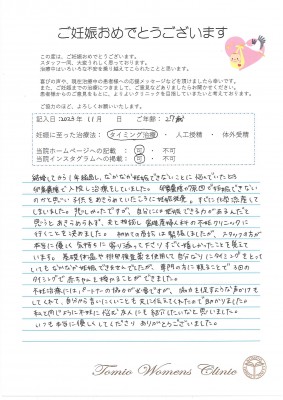 ご妊娠おめでとうございます
この度は、ご妊娠おめでとうございます。
スタッフ一同、大変うれしく思っております。
治療中はいろいろな不安を乗り越えてこられたことと思います。
喜びの声や、現在治療中の患者様への応援メッセージなどを頂けましたら幸いです。
また、ご妊娠までの治療につきまして、ご意見などありましたらお聞かせください。
患者様からのご意見をもとに、よりよいクリニックを目指していきたいと考えております。
ご協力のほど、よろしくお願いいたします。
記入日:2023年 11月 日 ご年齢:27歳
妊娠に至った治療法: タイミング治療 ・ 人工授精 ・ 体外受精
当院ホームページへの記載 : 可 ・ 不可
当院インスタグラムへの掲載: 可 ・ 不可
結婚してから1年経過し、なかなか妊娠できないことに悩んでいたところ
卵巣嚢腫で入院し治療していました。卵巣嚢腫が原因で妊娠できない
のかと思い子供をあきらめていたように妊娠発覚。すぐに化学流産して
しまいました。悲しかったですが、自分には妊娠できる力があるんだと
思うとあきらめられず、夫と相談し富坂産婦人科の不妊クリニックに
行くことを決めました。初めての受診は緊張しましたが、スタッフの方が
本当に優しく気持ちに寄り添って下さりすごく嬉しかったことを覚えて
います。基礎体温や排卵検査薬を使用して自分なりにタイミングをとって
いてもなかなか妊娠できませんでしたが、専門の方に頼ることで3回の
タイミングで赤ちゃんを授かることができました。
不妊治療にはパートナーの協力が必要ですが、協力を促すような声かけを
してくれて、自分から言いにくいことも夫に伝えてくれたので助かりました。
私と同じように不妊に悩む友人にも紹介したいなと思いました。
いつも本当に優しくしてくださりありがとうございました。
Tomio Womens Clinic